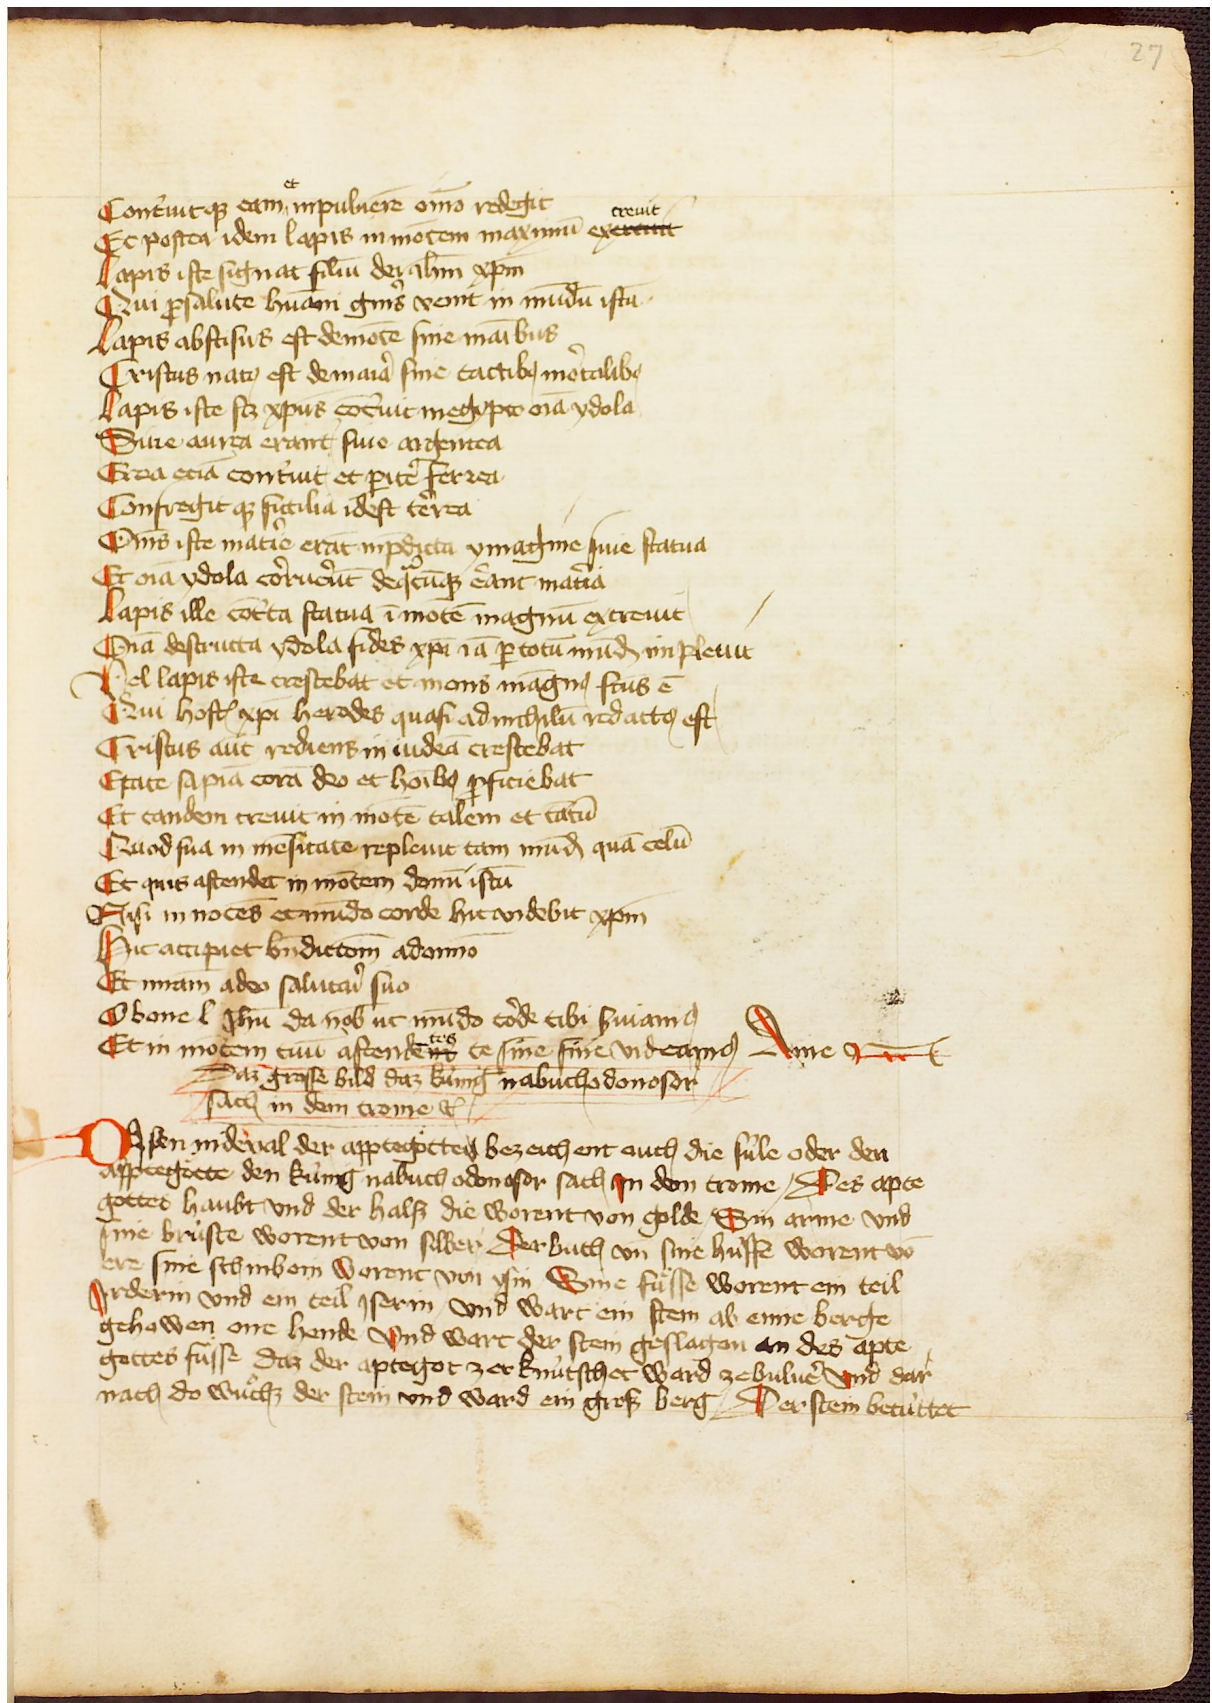 27
Contͥuit qꝫ eam et inpuluerē om̄o redegit
Et postea idem lapis in mōtem maximū excreuit
Lapis iste signat filiū dei ihm̄ xpm̄
Qui ꝓ salute huāni gnͥs venit in mūdū istū
Lapis abscisus est de mōte sine māibus
Cristus natꝰ est de maͥa sine tactibꝰ mōtalibꝰ
Lapis iste scꝫ xpūs cōtͥuit in egypto oīa ydola
Siue aurea erant siue argentea
Erea eciā contͥuit et pͥitē ferrea
Confregit qꝫ fictilia idest terrea
Om̄s iste matͥe erāt in p̄dicta ymagine siue statua
Et oīa ydola corruerūt de qͣcūqꝫ erant matͥia
Lapis ille cōtͥta statua ī mōtē magnū excreuit
Oīa destructa ydola fides xpī iā ꝑ totū mūdū inpleuit
Vel lapis iste crescebat et mons māgnꝰ fcūs ē
Qui hostꝭ xpī herodes quasi ad nichilū redactꝰ est
Cristus aūt rediens in iudeā crescebat
Etate sapīa corā deo et hoībꝰ ꝓficiebat
Et tandem creuit in mōtē talem et tātū
Quod sua in mēsitate repleuit tam mūdū quā celū
Et quis ascendet in mōtem domī istū
Nisi in nocēs et mūdo corde hic videbit xpm̄
Hic accipiet bn̄dictōm̄ a domīo
Et m̄iam a deo salutaͥ suo
O bone l Jhū da nob̄ ut mūdo corde tibi ẜuiamꝰ
Et in mōtem tuū ascendentes te sine fine videamꝰ Ame
Daz grosse bild daz kúnig nabuchodonosor
sach in dem trome ꝛc
Disen nideval der apptegötten bezeichent ouch die súle oder den
apptegötte den kúnig nabuchodonosor sach Jn den trome / Des apte
gottes haubt vnd der halß die worent von golde / Sin arme vnd
sine brúste worent von silber Der buch vn̄ sine húffe worent vō
ere sine schinbein worent von ysin Sine fússe worent ein teil
Jrderin vnd ein teil Jserin vnd wart ein stein ab eime berge
gehowen one hende Vnd wart der stein geslagen an des apte
gottes fússe daz der aptegot zerknútschet ward ze buluer̄ Vnd dar
nach do wuͦchs der stein vnd ward ein groß berg / Der stein betúttet